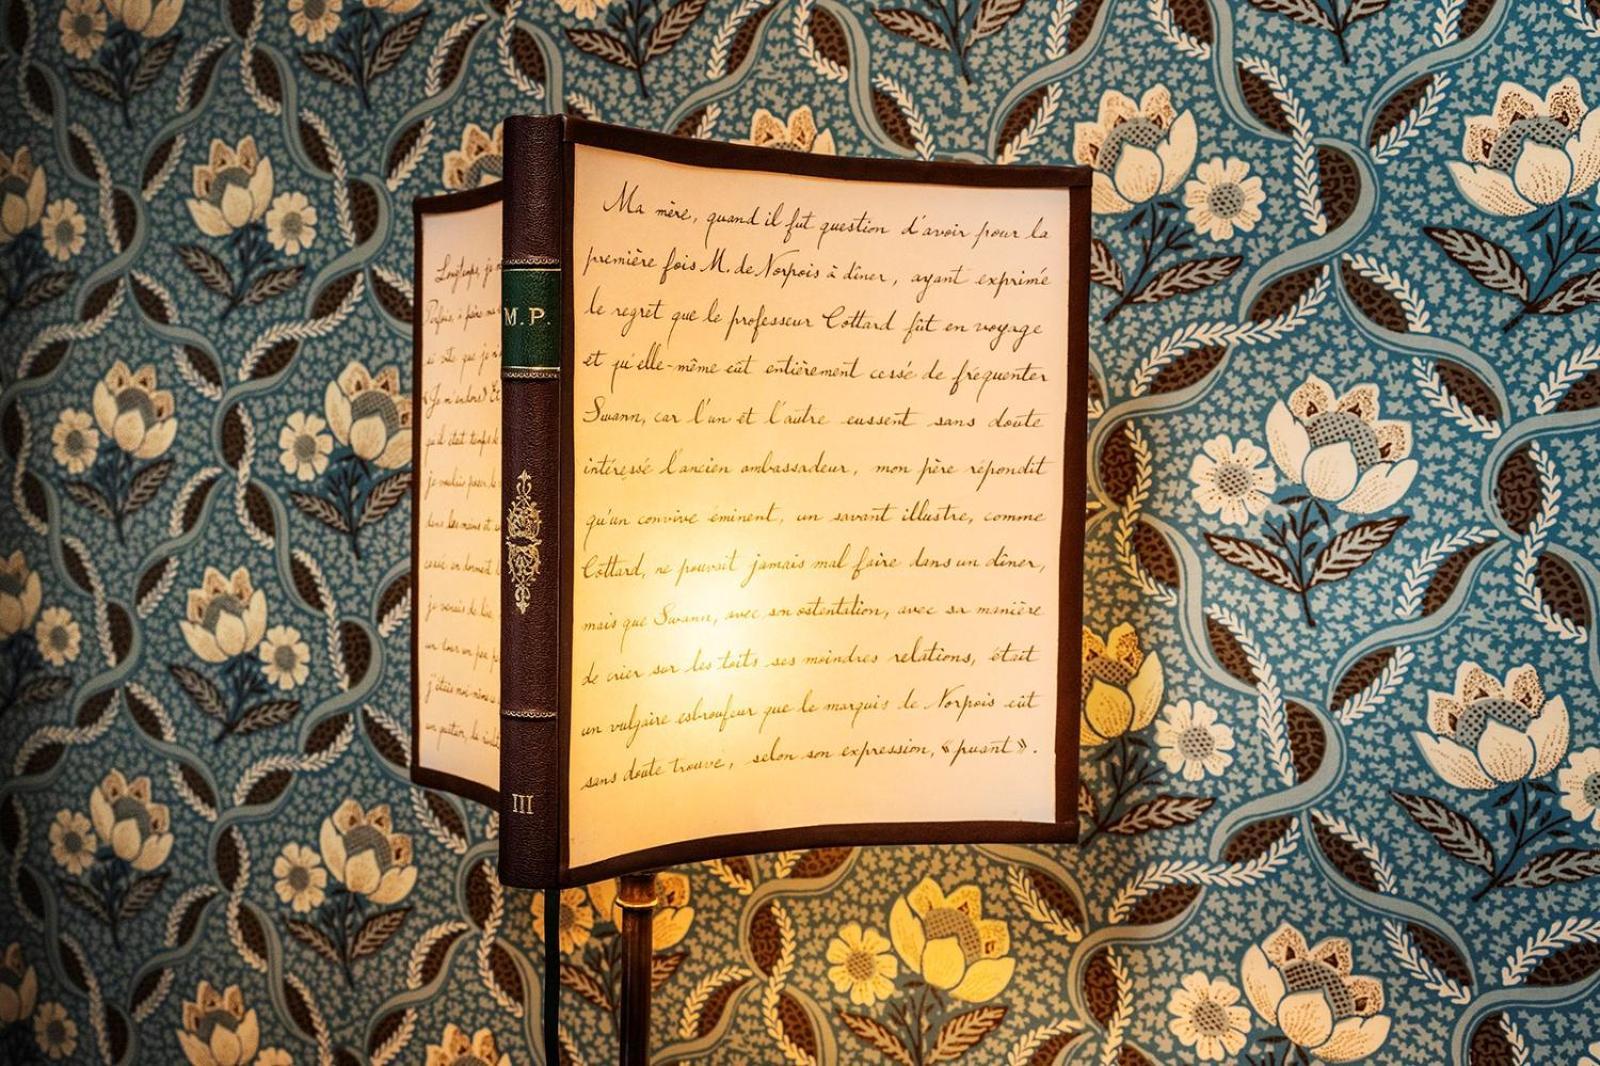 Longtemps, je
Parfois, à peine ma
si vite que je n
«Je m'endors» Et
qu'il était temps de
je voulais poser le
dans les mains et
cessé en dormant
je venais de lire,
un tour un peu p
j'étais moi-même
un quatuor, la rivalité
M.P.
III
Ma mère, quand il fut question d'avoir pour la
première fois M. de Norpois à dîner, ayant exprimé
le regret que le professeur Cottard fût en voyage
et qu'elle-même eût entièrement cessé de fréquenter
Swann, car l'un et l'autre eussent sans doute
intéressé l'ancien ambassadeur, mon père répondit
qu'un convive éminent, un savant illustre, comme
Cottard, ne pouvait jamais mal faire dans un dîner,
mais que Swann, avec son ostentation, avec sa manière
de crier sur les toits ses moindres relations, était
un vulgaire esbroufeur que le marquis de Norpois eût
sans doute trouvé, selon son expression, «puant».